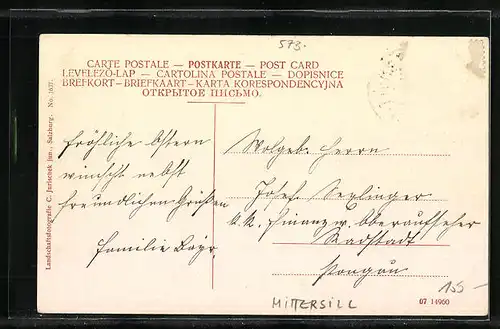 573.
CARTE POSTALE — POSTKARTE — POST CARD
LEVELEZŐ-LAP — CARTOLINA POSTALE — DOPISNICE
BREFKORT — BRIEFKAART — KARTA KORESPONDENCYJNA
ОТКРЫТОЕ ПИСЬМО.
Landschaftsfotografie C. Jurischek jun., Salzburg. No. 1037.
Fröhliche Ostern
wünscht nebst
freundlichen Grüßen
Familie
Wolgeb. Herrn
Josef
k.k. Finanzw. Oberaufseher
Radstadt
Pongau
MITTERSILL
67 14960
155-